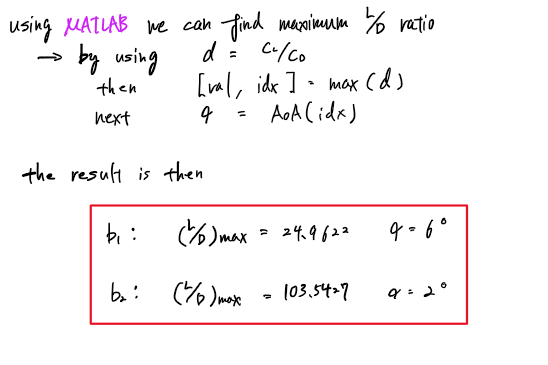 using MATLAB we can find maximum L/D ratio
→ by using d = CL/CD
then [val, idx] = max(d)
next α = AoA(idx)
the result is then
b₁ : (L/D)max = 24.9622 α = 6°
b₂ : (L/D)max = 103.5427 α = 2°